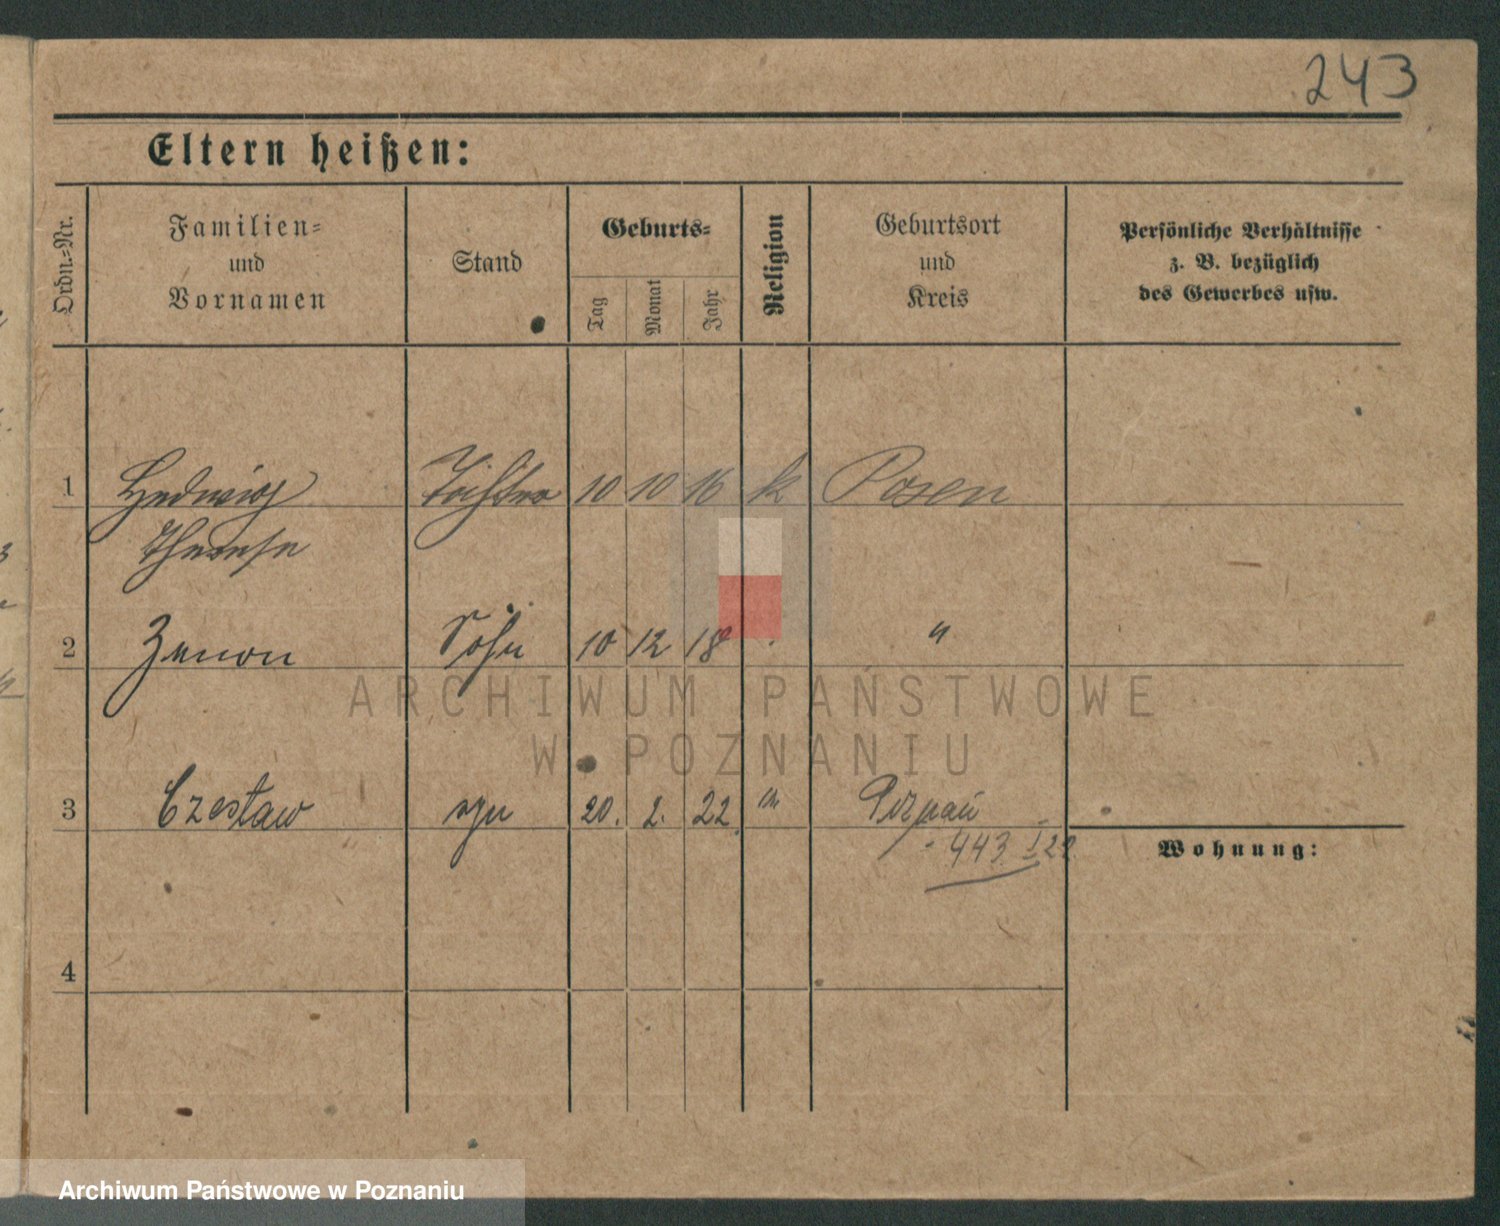 243
Eltern heißen:
Ordn.-Nr.
Familien-
und
Vornamen
Stand
Geburts-
Tag
Monat
Jahr
Religion
Geburtsort
und
Kreis
Persönliche Verhältnisse
z. B. bezüglich
des Gewerbes usw.
1 Hedwig Tochter 10 10 16 k Posen
Therese
2 Zenon Sohn 10 12 18 "
ARCHIWUM PAŃSTWOWE
W POZNANIU
3 Czesław syn 20. 2. 22. " Poznań
443 I 22.
Wohnung:
4
Archiwum Państwowe w Poznaniu